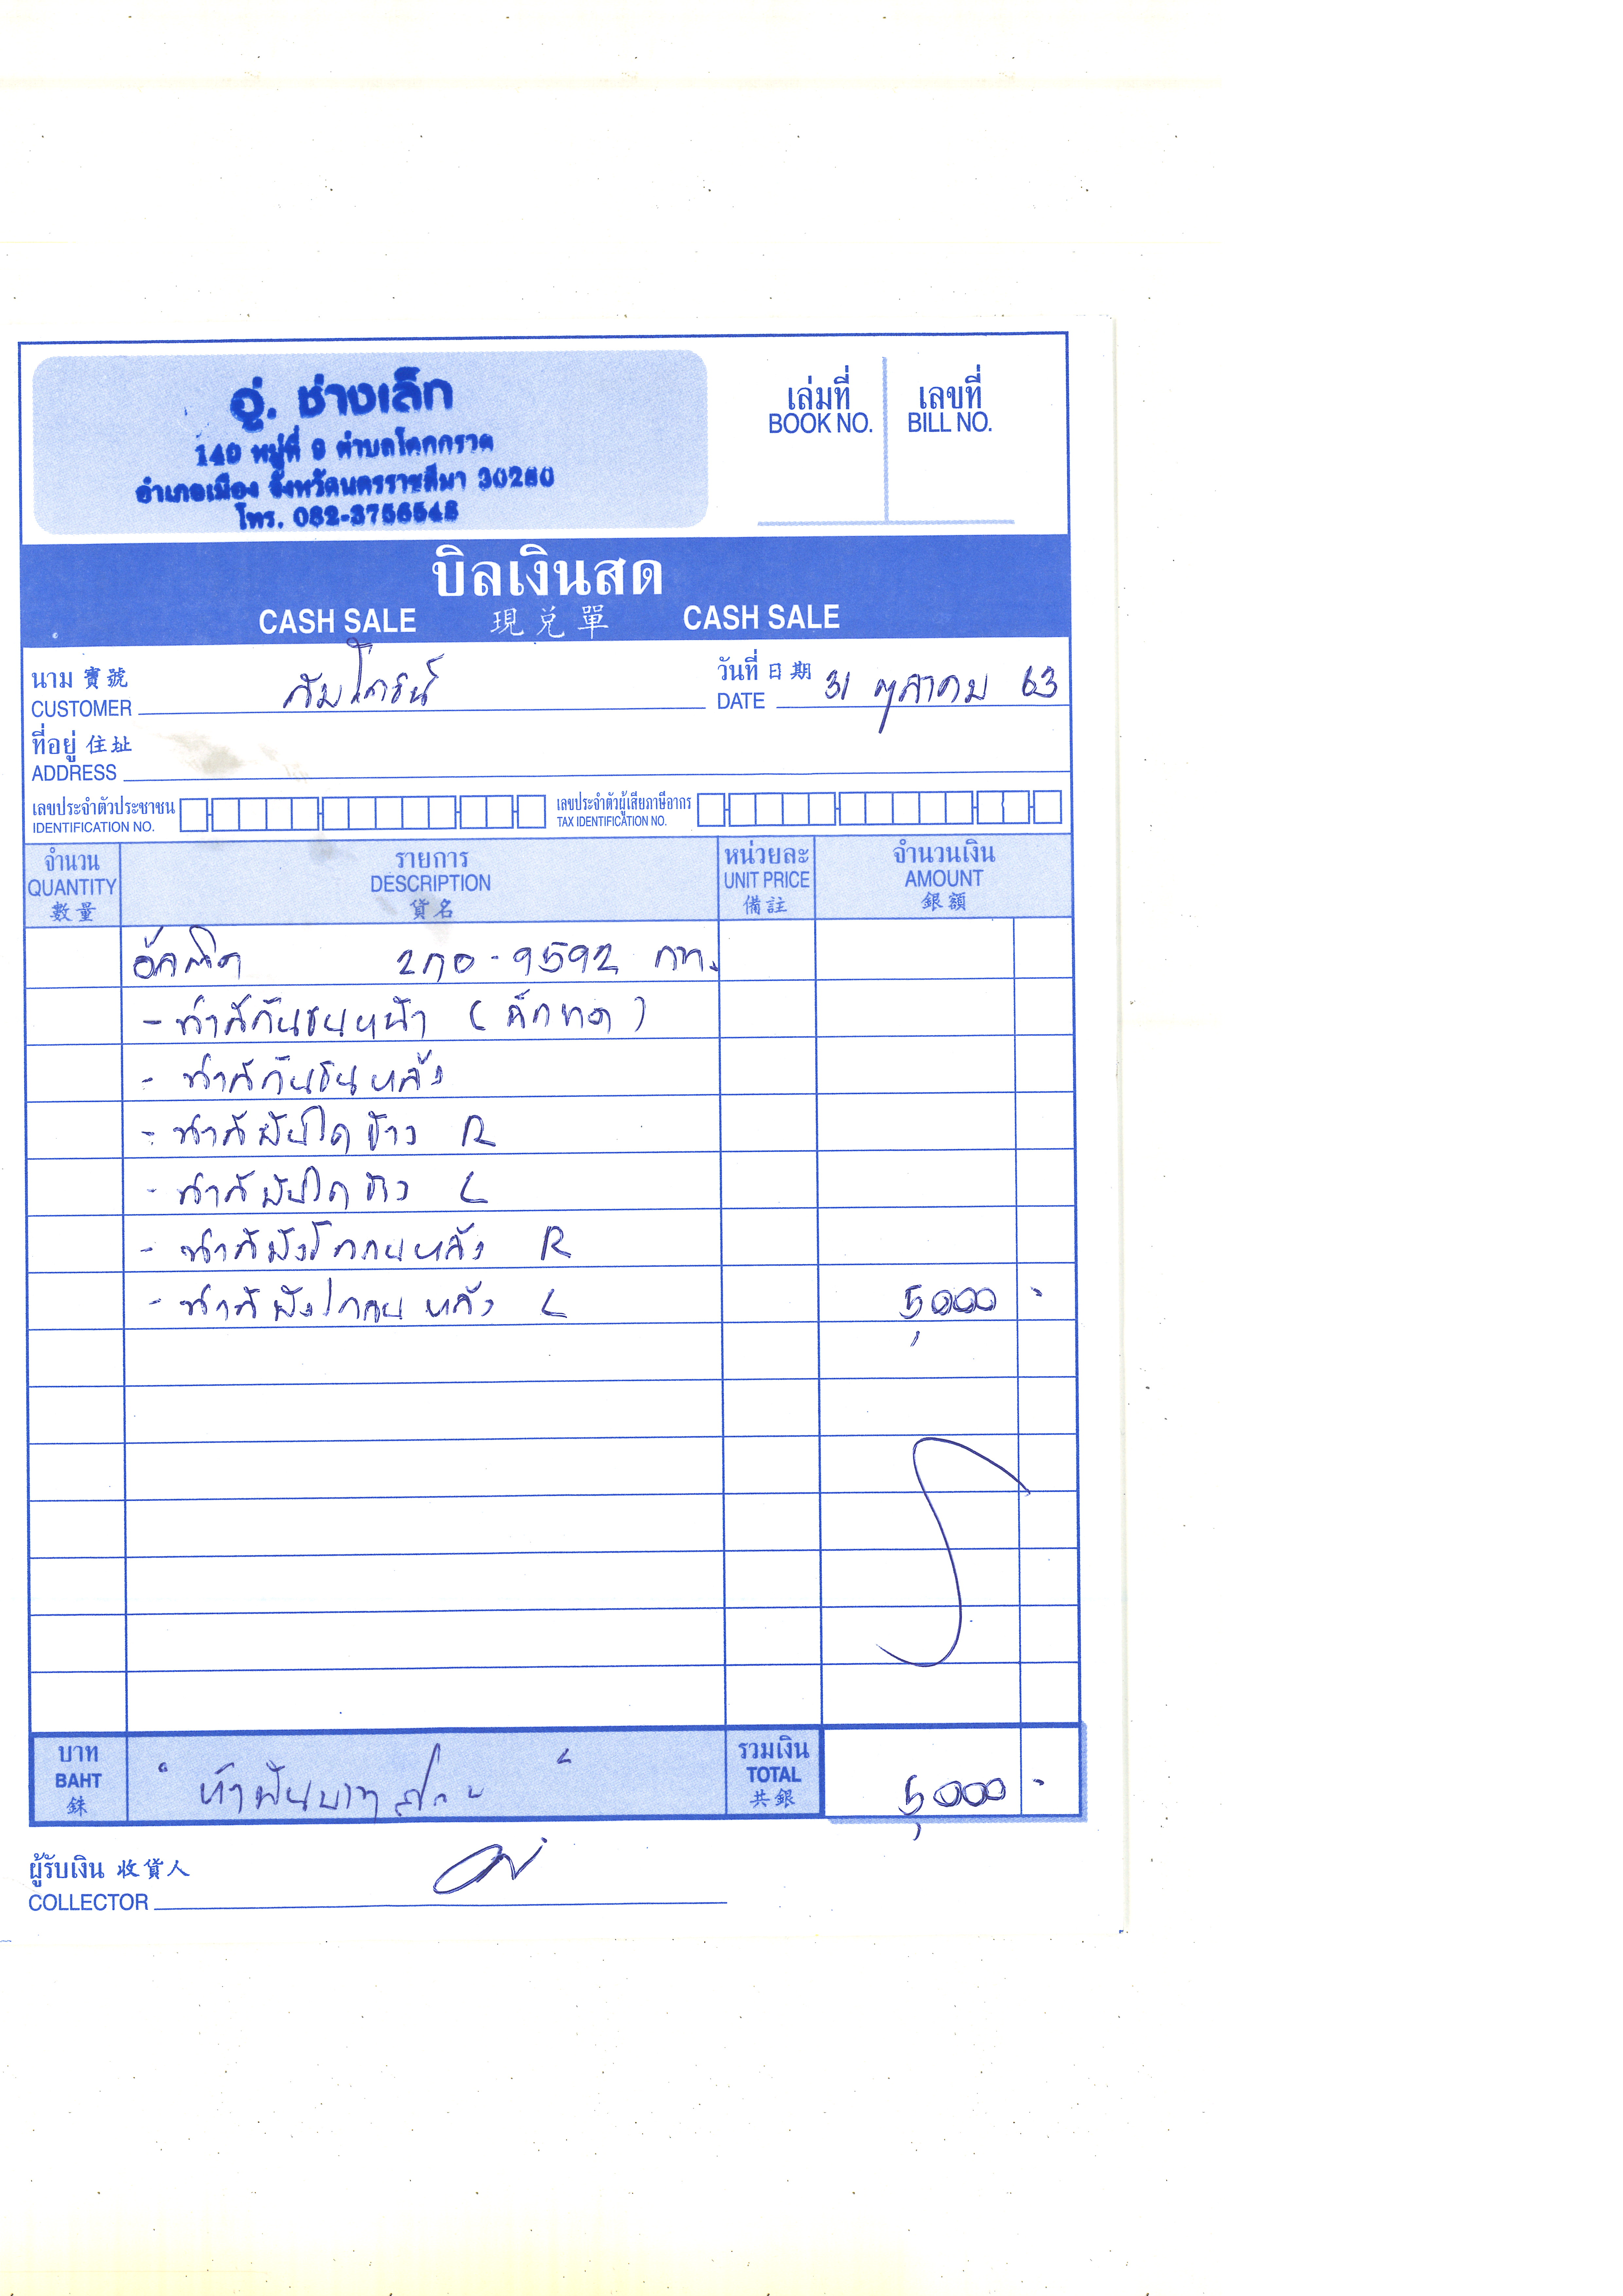 อู่. ช่างเล็ก
140 หมู่ที่ 9 ตำบลโคกกรวด
อำเภอเมือง จังหวัดนครราชสีมา 30280
โทร. 082-3756548
เล่มที่ เลขที่
BOOK NO. BILL NO.
บิลเงินสด
CASH SALE 現兑單 CASH SALE
นาม 寶號 วันที่ 日期
CUSTOMER DATE 31 ตุลาคม 63
ที่อยู่ 住址
ADDRESS
เลขประจำตัวประชาชน เลขประจำตัวผู้เสียภาษีอากร
IDENTIFICATION NO. TAX IDENTIFICATION NO.
จำนวน รายการ หน่วยละ จำนวนเงิน
QUANTITY DESCRIPTION UNIT PRICE AMOUNT
數量 貨名 備註 銀額
2กอ-9592 กท.
- ทำสีกันชนหน้า
- ทำสีกันชนหลัง
- ทำสีบันไดข้าง R
- ทำสีบันไดข้าง L
- ทำสีบังโคลนหลัง R
- ทำสีบังโคลนหลัง L 5,000 -
บาท รวมเงิน
BAHT " ห้าพันบาทถ้วน " TOTAL 5,000 -
銖 共銀
ผู้รับเงิน 收貨人
COLLECTOR